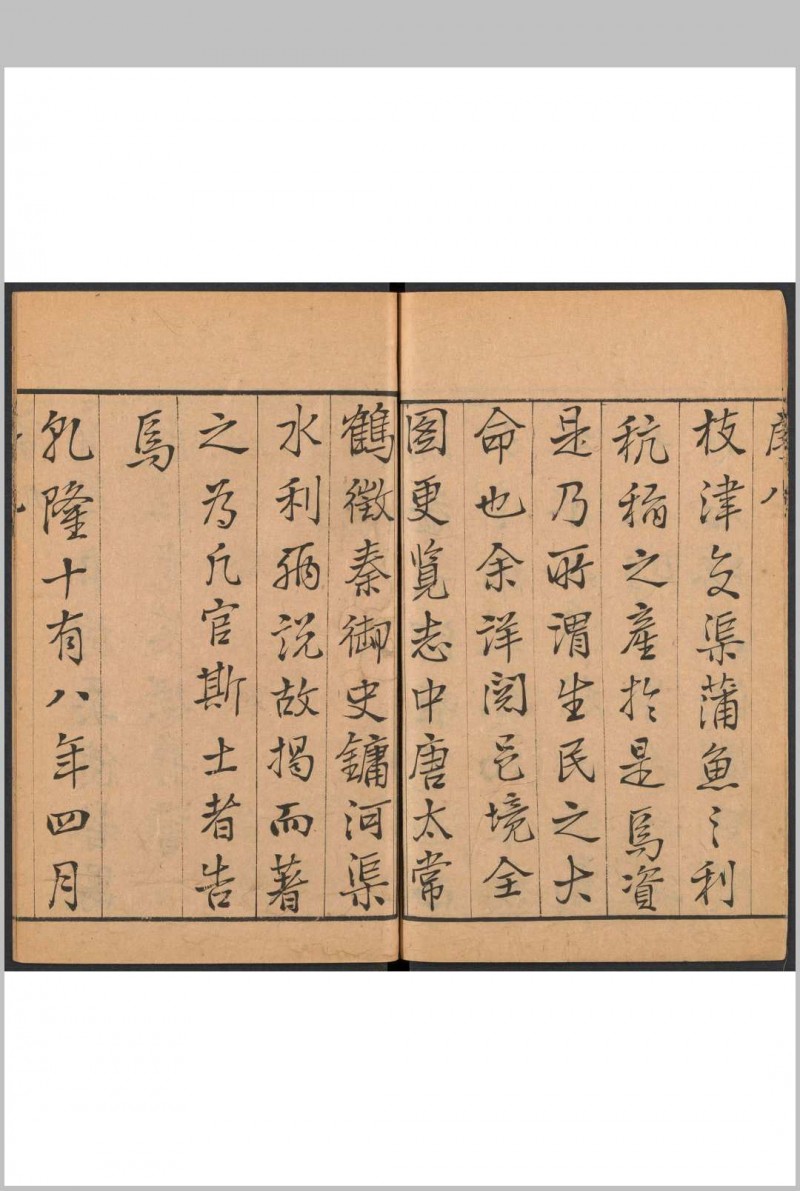 序 八
枝津交渠蒲魚之利
秔稻之產於是焉資
是乃所謂生民之大
命也余詳閱邑境全
圖更覽志中唐太常
鶴徵秦御史鏞河渠
水利兩說故揭而著
之為凡官斯土者告
焉
乾隆十有八年四月